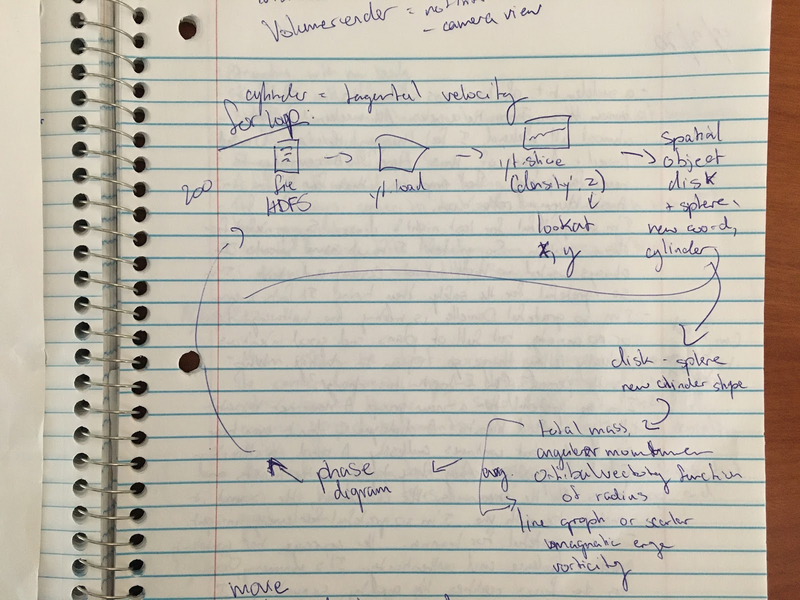 Volumerender =
- camera view
cylinder = tagenital velocity
for loop:
200
file
HDFS
yt load
yt.slice
(density, z)
lookat
x, y
spatial
object
disk
+ sphere,
new coord,
cylinder
disk - sphere
new cylinder shype
total mass,
angular momentumen
orbital vectoity function
of radius
avg.
line graph or scarlar
magnatic enge
vorticity
phase
digram
move